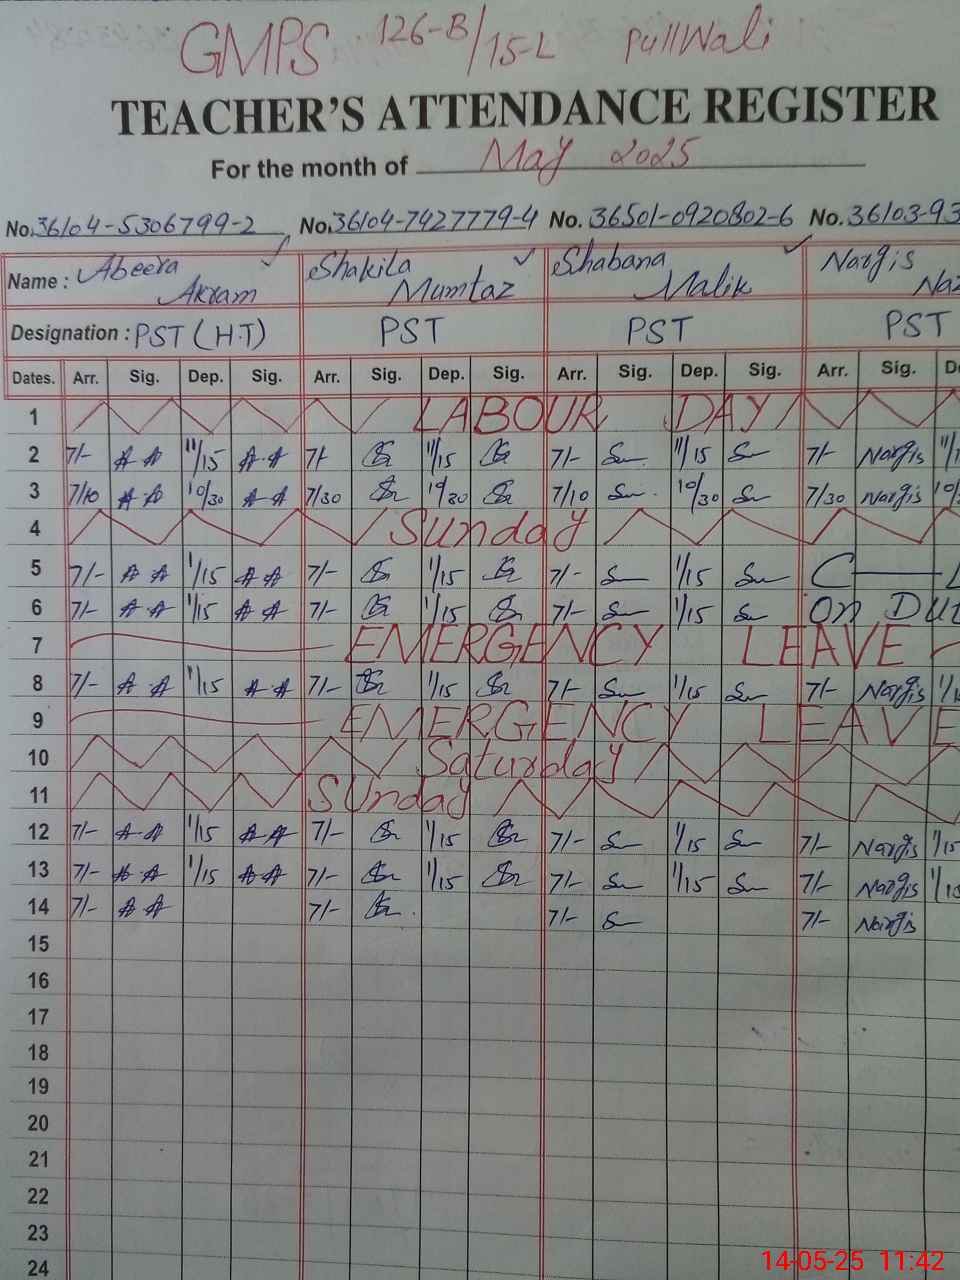 GMPS 126-B/15-L PullWali
TEACHER'S ATTENDANCE REGISTER
For the month of May 2025
No. 36104-5306799-2 No. 36104-7427779-4 No. 36501-0920802-6 No. 36103-93
Name : Abeera Akram Shakila Mumtaz Shabana Malik Nargis Naz
Designation : PST (H.T) PST PST PST
Dates. Arr. Sig. Dep. Sig. Arr. Sig. Dep. Sig. Arr. Sig. Dep. Sig. Arr. Sig. De
1 LABOUR DAY
2 7/- 11/15 7/- 11/15 7/- 11/15 7/- Nargis 11/1
3 7/10 10/30 7/30 10/30 7/10 10/30 7/30 Nargis 10/3
4 Sunday
5 7/- 1/15 7/- 1/15 7/- 1/15 C — L
6 7/- 1/15 7/- 1/15 7/- 1/15 On Dut
7 EMERGENCY LEAVE
8 7/- 1/15 7/- 1/15 7/- 1/15 7/- Nargis 1/1
9 EMERGENCY LEAVE
10 Saturday
11 Sunday
12 7/- 1/15 7/- 1/15 7/- 1/15 7/- Nargis 1/15
13 7/- 1/15 7/- 1/15 7/- 1/15 7/- Nargis 1/15
14 7/- 7/- 7/- 7/- Nargis
15
16
17
18
19
20
21
22
23
24
14-05-25 11:42